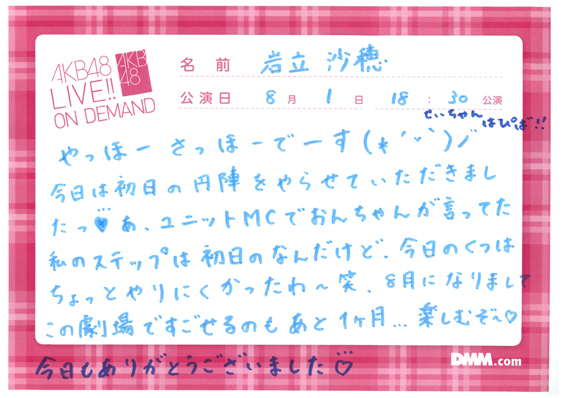 AKB48
LIVE!!
ON DEMAND
AKB
48
名前 岩立 沙穂
公演日 8月 1日 18:30 公演
せいちゃん
はぴば!!
やっほー さっほーでーす(*´ᵕ`)ノ
今日は初日の円陣をやらせていただきまし
たっ♥ あ、ユニットMCでおんちゃんが言ってた
私のステップは初日のなんだけど、今日のくつは
ちょっとやりにくかったわ〜笑、8月になりまして
この劇場ですごせるのもあと1ヶ月… 楽しむぞ〜♡
今日もありがとうございました♡
DMM.com